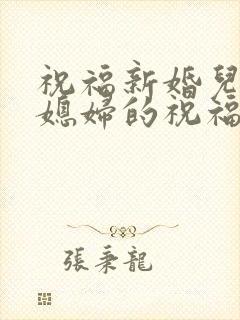 祝福新婚兒
媳婦的祝福
張秉龍